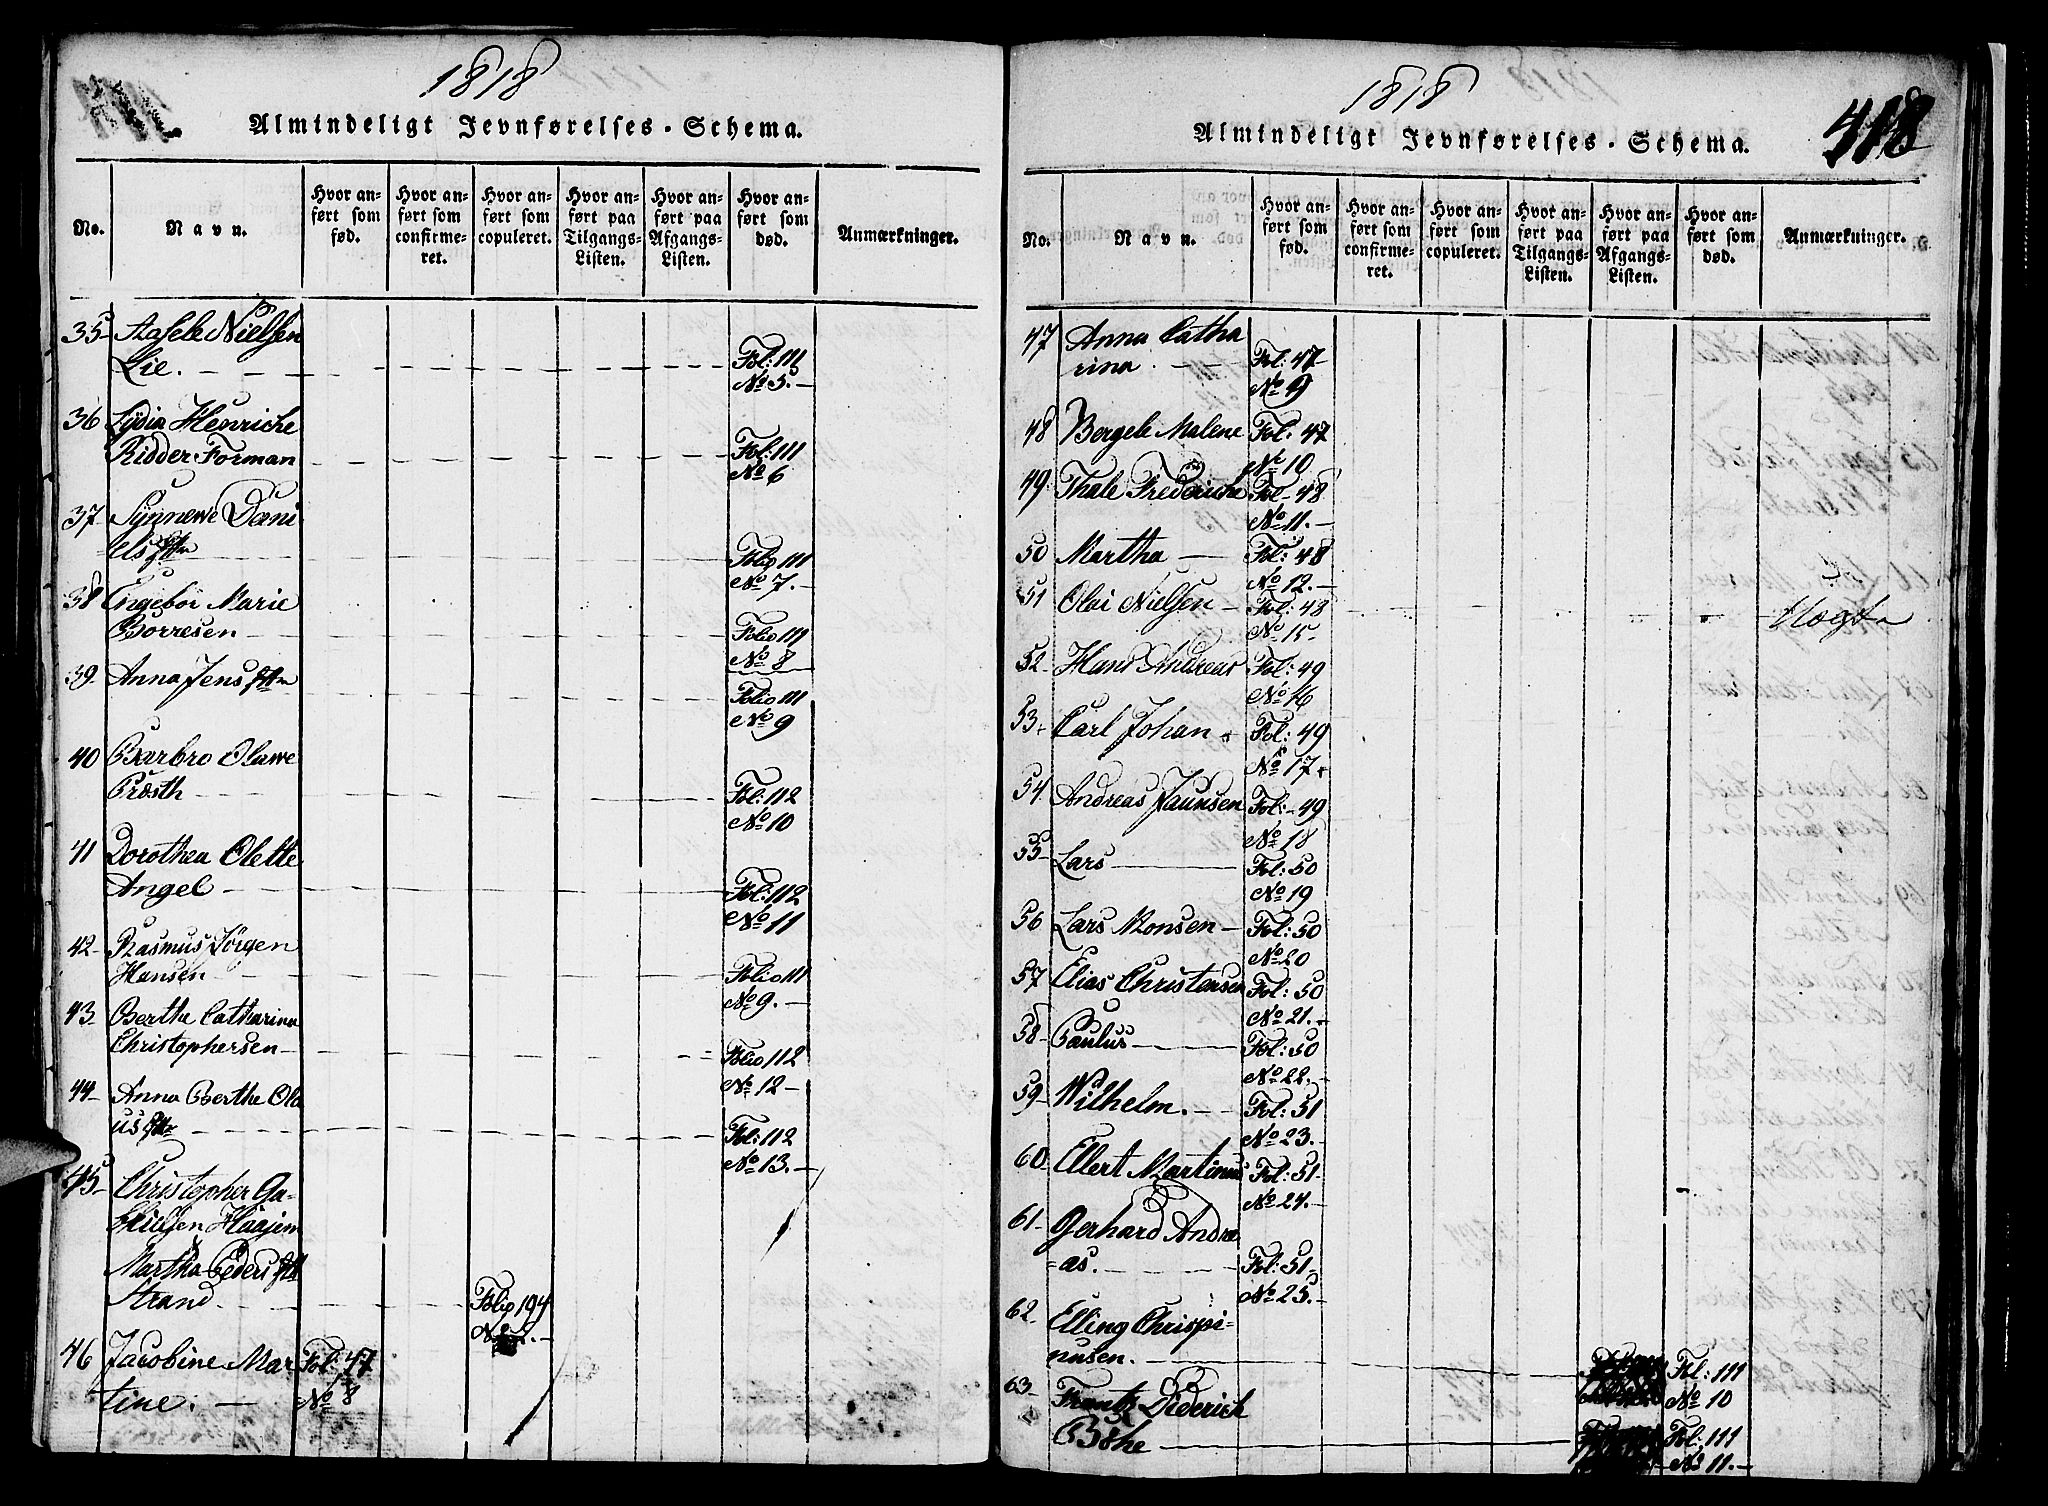 1818
Almindeligt Jevnførelses-Schema.
No.
Navn.
Hvor anført som fød.
Hvor anført som confirmeret.
Hvor anført som copuleret.
Hvor anført paa Tilgangs-Listen.
Hvor anført paa Afgangs-Listen.
Hvor anført som død.
Anmærkninger.
35 Aasele Nielsen
Lie. Fol: 111
No 5.
36 Lydia Henriche
Ridder Forman Fol: 111
No 6
37 Synnewe Dani
elsdttr Folio 111
No 7.
38 Engebor Marie
Borresen Folio 111
No 8
39 Anna Jens dttr
Folio 111
No 9
40 Barbro Olawe
Præsth Fol: 112
No 10
41 Dorothea Olette
Angel Fol: 112
No 11
42 Rasmus Jörgen
Hansen Folio 111
No 9.
43 Berthe Catharina
Christophersen Folio 112
No 12
44 Anna Berthe Ola
us dttr Fol: 112
No 13.
45 Christopher Ga-
Haajem
Martha Peders dtt
Strand Folio 194
No
46 Jacobine Mar Fol: 47
tine. No 8
1818
418
Almindeligt Jevnførelses-Schema.
No.
Navn.
Hvor anført som fød.
Hvor anført som confirmeret.
Hvor anført som copuleret.
Hvor anført paa Tilgangs-Listen.
Hvor anført paa Afgangs-Listen.
Hvor anført som død.
Anmærkninger.
47 Anna Catha
rina Fol: 47
No 9
48 Bergele Malene Fol. 47
No 10
49 Thale Frederiche Fol 48
No 11.
50 Martha Fol: 48
No 12.
51 Olai Nielsen Fol: 48
No 15
52 Hans Andreas Fol: 49
No 16
53 Carl Johan Fol: 49
No 17
54 Andreas Jaunsen Fol: 49
No 18
55 Lars Fol: 50
No 19
56 Lars Monsen Fol: 50
No 20
57 Elias Christensen Fol: 50
No 21.
58 Paulus Fol: 50
No 22.
59 Wilhelm. Fol: 51
No 23.
60 Ellert Martinus Fol: 51
No 24.
61 Gerhard Andre
as. Fol: 51
No 25.
62 Elling Chrispi-
nusen. Fol: 111
No 10
63 Frantz Diderich
Böhe Fol: 111
No 11.